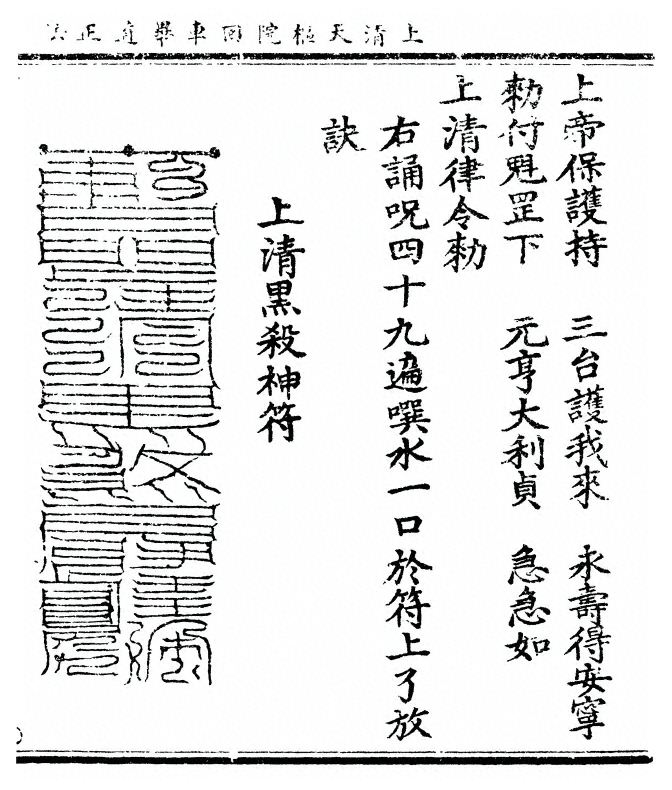 上清天樞院回車畢道正
上帝保護持　三台護我來　永壽得安寧
勑付魁罡下　元亨大利貞　急急如
上清律令勑
右誦呪四十九遍噀水一口於符上了放
訣
上清黑殺神符